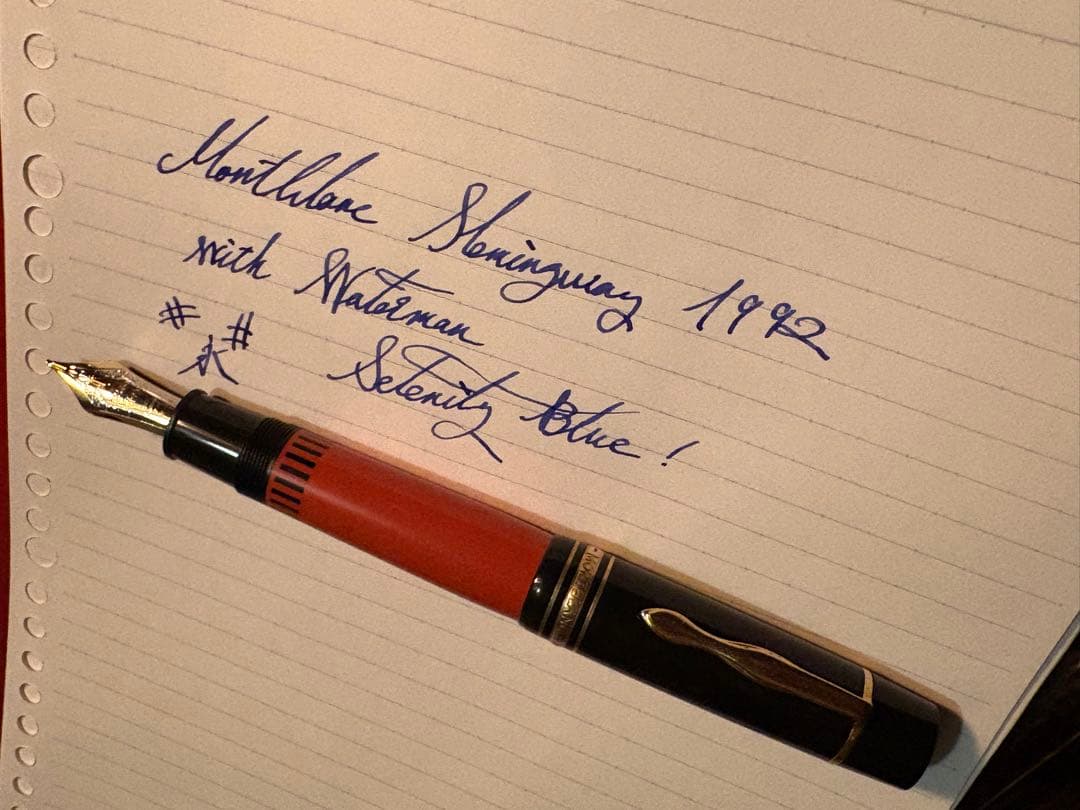 Montblanc Hemingway 1992
with Waterman
# #
永 Serenity Blue!
MONTBLANC